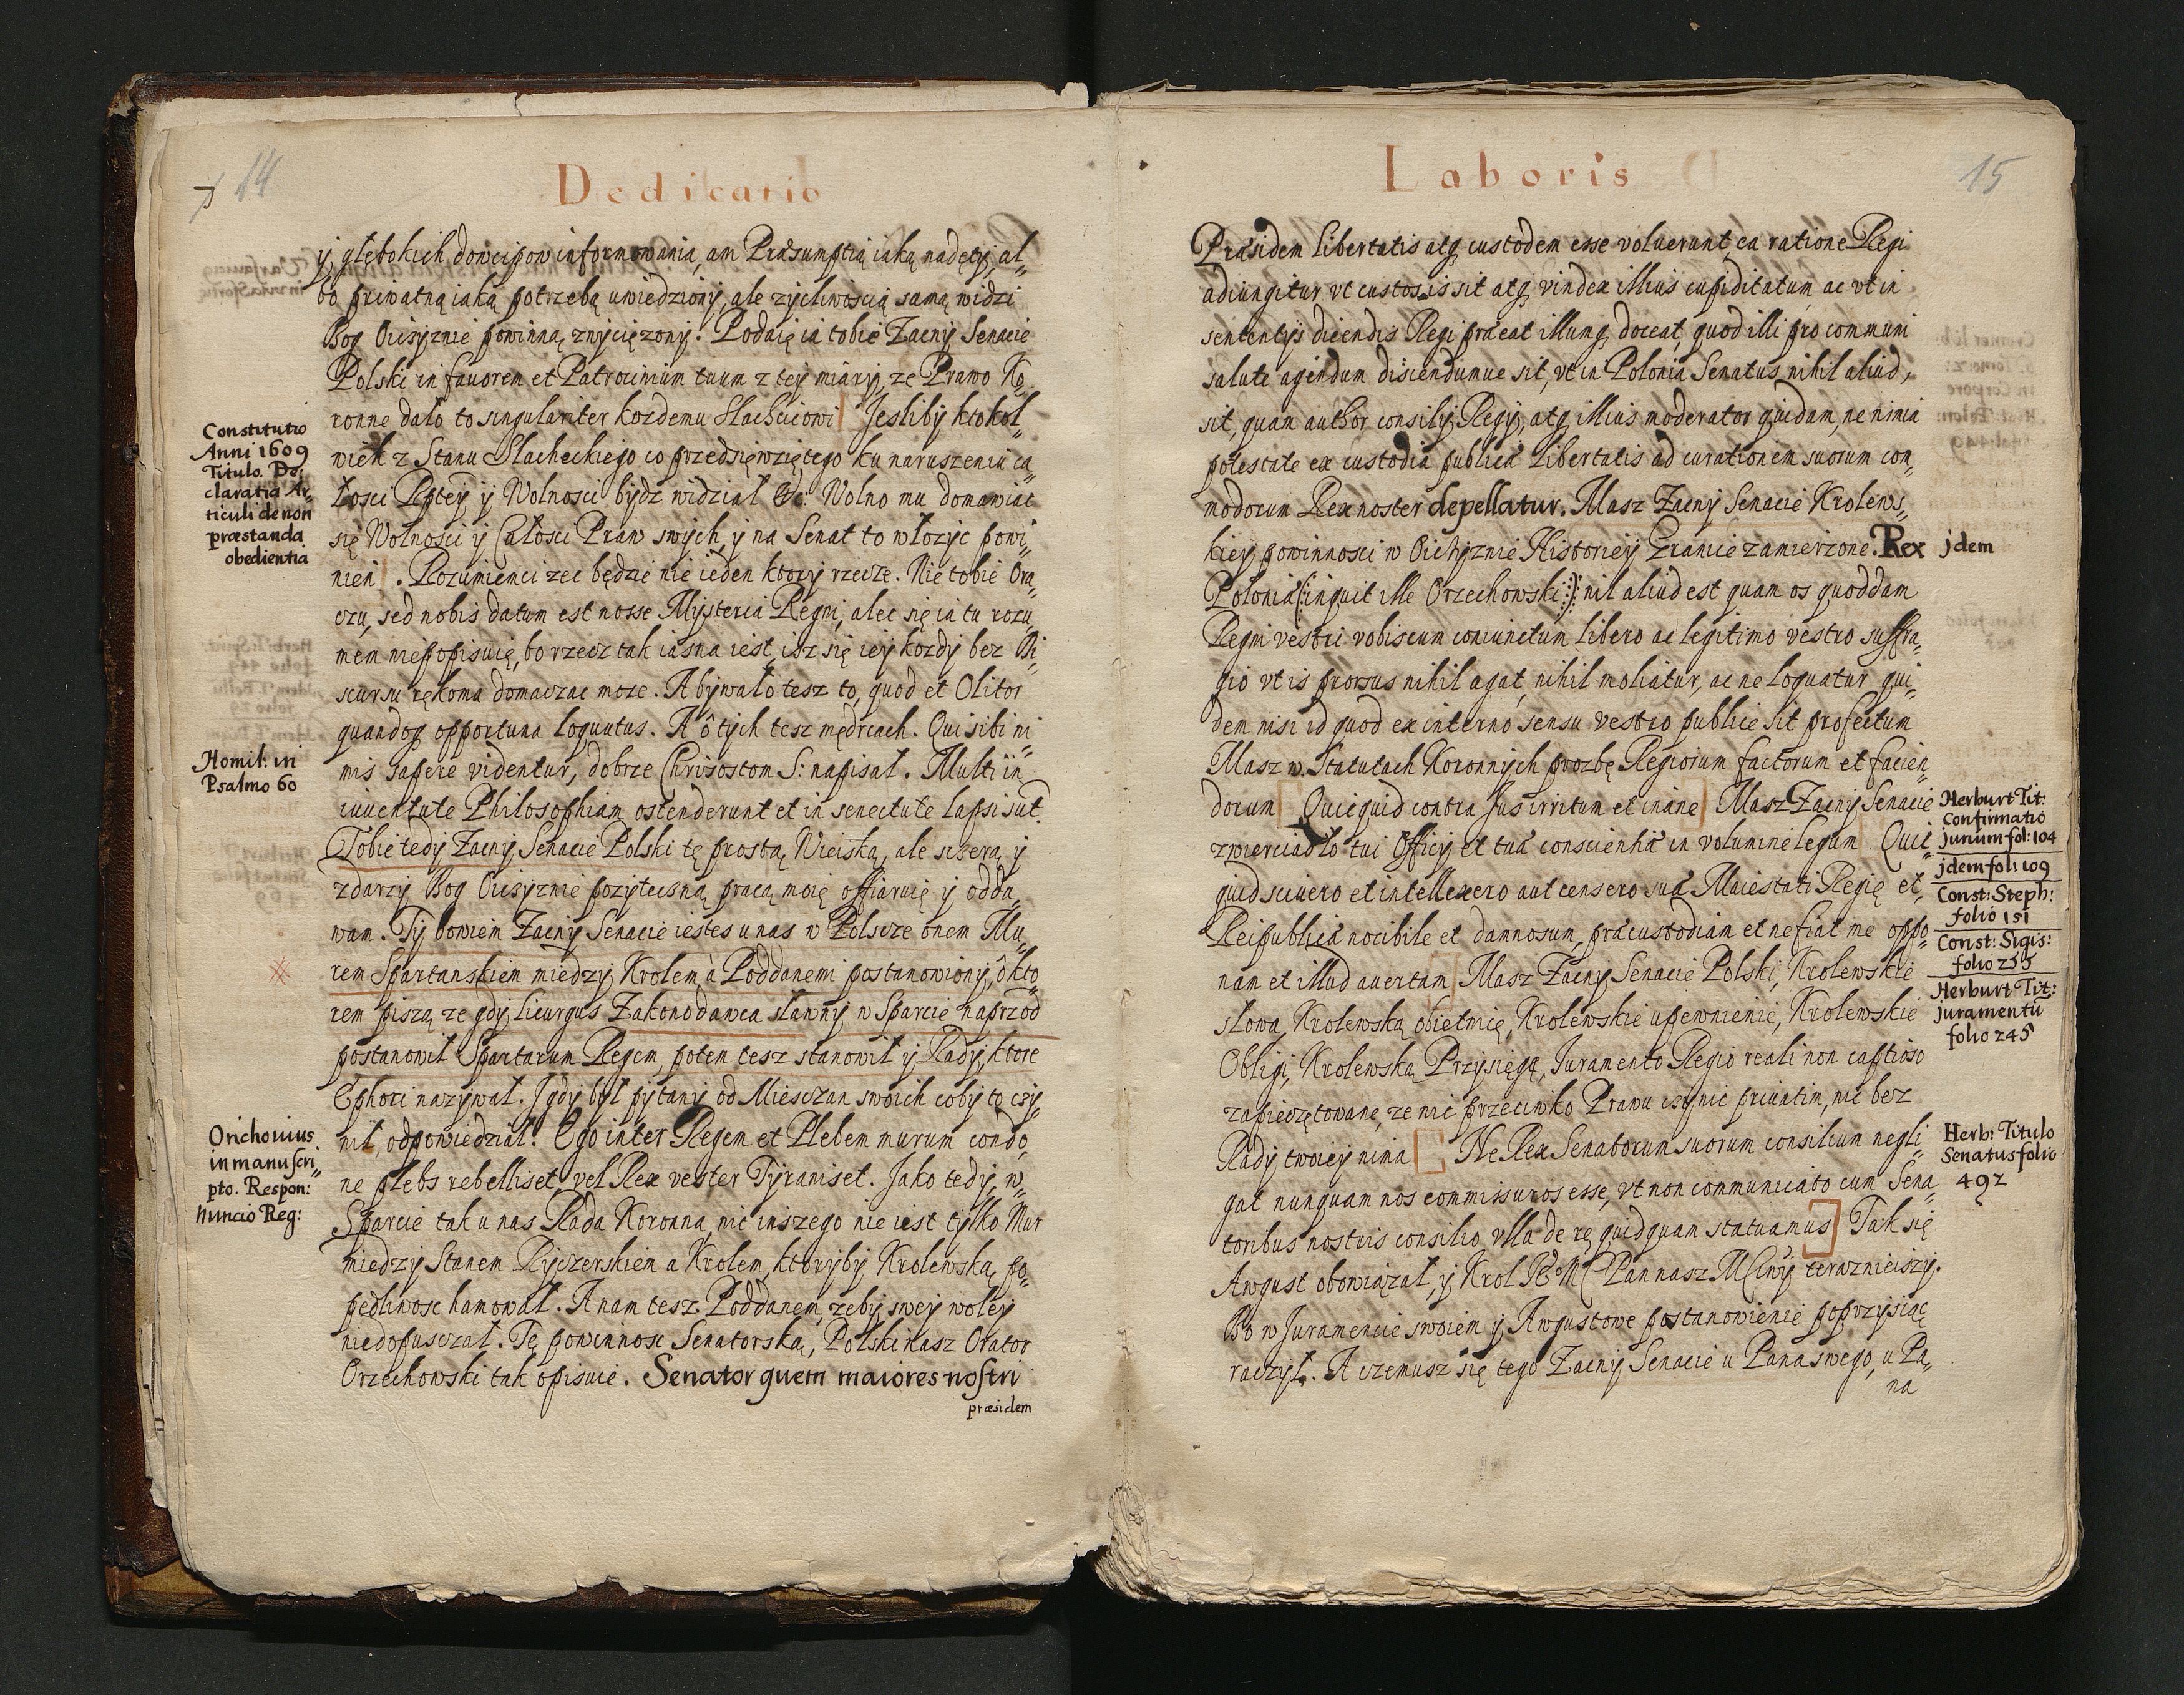 14
Dedicatio
y głębokich dowcipow informowania, ani Præsumptią iaką nadęty, al„
bo priwatną iaką potrzebą uwiedziony, ale zyczliwoscią samą widzi
Bog Oiczyznie powinną zwyciezony. Podaię ia tobie Zacny Senacie
Polski in fauorem et Patrocinium tuum z tey miary, ze Prawo Ko„
ronne dało to singulariter kozdemu Slachcicowi Jesliby ktokol„
wiek z Stanu Slacheckiego co przedsięwziętego ku naruszeniu ca„
łosci Rptey y Wolnosci bydz widział &c. Wolno mu domawiać
się Wolnosci y Całosci Praw swych, y na Senat to włozyc powi„
nien. Rozumiemci zec będzie nie ieden ktory rzecze. Nie tobie Ora„
czu, sed nobis datum est nosse Mysteria Regni, alec się ia tu rozu„
mem niepopisuię, bo rzecz tak iasna iest isz się iey kozdy bez Di„
scursu rękoma domaczac moze. A bywało tesz to, quod et Olitor
quandoq opportuna loquutus. A o tych tesz mędrcach. Qui sibi ni„
mis sapere videntur, dobrze Chrisostom S: napisał. Multi in
iuventute Philosophiam ostenderunt et in senectute lapsi sut.
Tobie tedy Zacny Senacie Polski tę prostą, Wieiską, ale sczerą y
zdarzy Bog Oiczyznie pozyteczną pracą moię offiaruię y odda„
wam. Ty bowiem Zacny Senacie iestes u nas w Polscze onem Mu„
rem Spartanskiem miedzy Krolem à Poddanemi postanowiony, ô kto„
rem piszą ze gdy Licurgus Zakonodawca slawny w Sparcie naprzod
postanowił Spartarum Regem, potem tesz stanowił y Rady, ktore
Ephori nazywał. I gdy był pytany od Miesczan swoich coby to czy„
nił, odpowiedział: Ego inter Regem et Plebem murum condo,
ne plebs rebelliset vel Rex vester Tyraniset. Jako tedy w
Sparcie tak u nas Rada Koronna, nic inszego nie iest tylko Mur
miedzy Stanem Ryczerskiem a Krolem, ktoryby Krolewską po„
pędliwosc hamował. A nam tesz Poddanem, zeby swey woley
niedopusczał. Tę powinnosc Senatorską, Polski nasz Orator
Orzechowski tak opisuie. Senator quem maiores nostri
præsidem
Constitutio
Anni 1609
Titulo. De„
claratia Ar„
ticuli de non
præstanda
obedientia
Homil: in
Psalmo 60
Orichouius
in manuscri„
pto. Respon:
Nuncio Reg:
15
Laboris
Præsidem Libertatis atq custodem esse voluerunt, ea ratione Regi
adiungitur vt custos is sit atq vindex illius cupiditatum ac vt in
sententys dicendis Regi præeat illumq doceat, quod illi pro communi
salute agendum discendumue sit, vt in Polonia Senatus nihil aliud,
sit, quam author consily Regy, atq illius moderator quidam, ne nimia
potestate ex custodia publicæ Libertatis ad curationem suorum com„
modorum Rex noster depellatur. Masz Zacny Senacie Krolews„
kiey powinnosci w Oiczyznie Historiey Granice zamierzone. Rex
Poloniæ (: inquit ille Orzechowski :) nil aliud est quam os quoddam
Regni vestri vobiscum coniunctum libero ac legitimo vestro suffra„
gio vt is prorsus nihil agat, nihil moliatur, ac ne loquatur qui„
dem nisi id quod ex interno sensu vestro publice sit profectum
Masz w Statutach Koronnych prozbę Regiorum factorum et facien„
dorum Quicquid contra Jus irritum et inane Masz Zacny Senacie
zwierciadło tui Officy et tuæ conscientiæ in volumine legum Quic„
quid sciuero et intellexero aut censero suæ Maiestati Regię et
Reipublicæ nocibile et damnosum, præcustodiam et ne fiat me oppo„
nam et illud auertam Masz Zacny Senacie Polski, Krolewskie
słowa, Krolewską obietnię, Krolewskie upewnienie, Krolewskie
Obligi, Krolewską Przysięgę, Juramento Regio reali non captioso
zapieczętowane, ze nic przeciwko Prawu czynic priuatim, nic bez
Rady twoiey nima Ne Rex Senatorum suorum consilium negli„
gat nunquam nos commissuros esse, vt non communicato cum Sena„
toribus nostris consilio vlla de rę quidquam statuamus Tak się
Awgust obowiązał, y Krol Pan nasz terazniejszy.
Bo w Juramencie swoiem y Awgustowe postanowienie poprzysiąc
raczył. A czemusz się tego Zacny Senacie u Pana swego, u Pa„
na
jdem
Herburt Tit:
Confirmatio
Jurium fol: 104
jdem fol: 109
Const: Steph:
folio 151
Const: Sigis:
folio 255
Herburt Tit:
Juramentū
folio 245
Herb: Titulo
Senatus folio
492